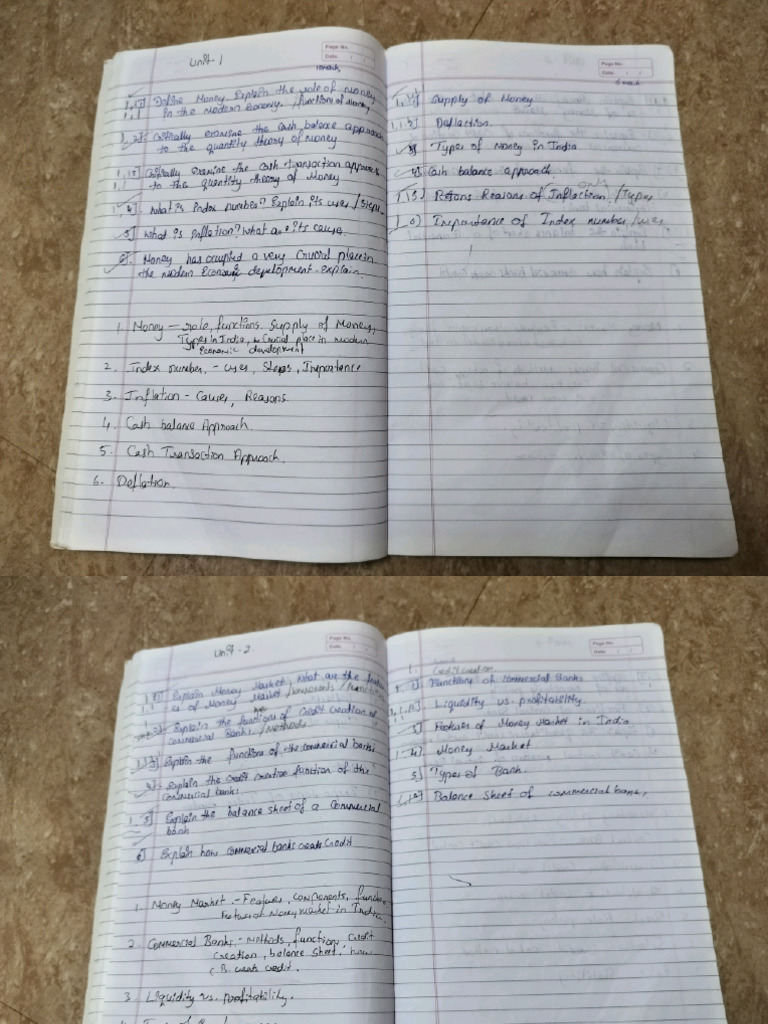 Unit-1
Page No.
Date: / /
10 mark
1) Define Money. Explain the role of money
in the modern Economy. /functions of Money
2) Critically examine the Cash balance approach
to the quantity theory of money
3) Critically examine the Cash transaction approach
to the quantity theory of Money
4) What is Index number? Explain its uses / steps.
5) What is Inflation? What are its cause.
6) Money has occupied a very Crucial place in
the modern Economic development. Explain.
1. Money — role, functions. Supply of Money,
Types in India, Crucial place in modern
Economic development
2. Index number. - uses, Steps, Importance
3. Inflation - Causes, Reasons.
4. Cash balance Approach.
5. Cash Transaction Approach.
6. Deflation.
Page No.
Date: / /
5 mark
1) Supply of Money
2) Deflection.
3) Types of Money in India
4) Cash balance approach.
5) Reasons of Inflection /Types
6) Importance of Index number /uses
Unit-2.
Page No.
Date: / /
1) Explain Money Market, What are the
of Money Market /components /
2) Explain the functions of Credit creation of
Commercial Banks. /Methods.
3) Explain the functions of the commercial banks
4) Explain the credit creation function of the
Commercial banks.
5) Explain the balance sheet of a Commercial
bank
6) Explain how commercial banks create Credit
1. Money Market. - Features, components, function
Features of Money market in India.
2. Commercial Banks - methods, function, credit
creation, balance sheet, how
C.B. creats credit.
3. Liquidity vs. profitability.
Page No.
Date: / /
Credit creation
1) Functions of commercial Banks
2) Liquidity vs. profitability.
3) Features of Money Market in India
4) Money Market
5) Types of Bank.
6) Balance sheet of commercial banks,